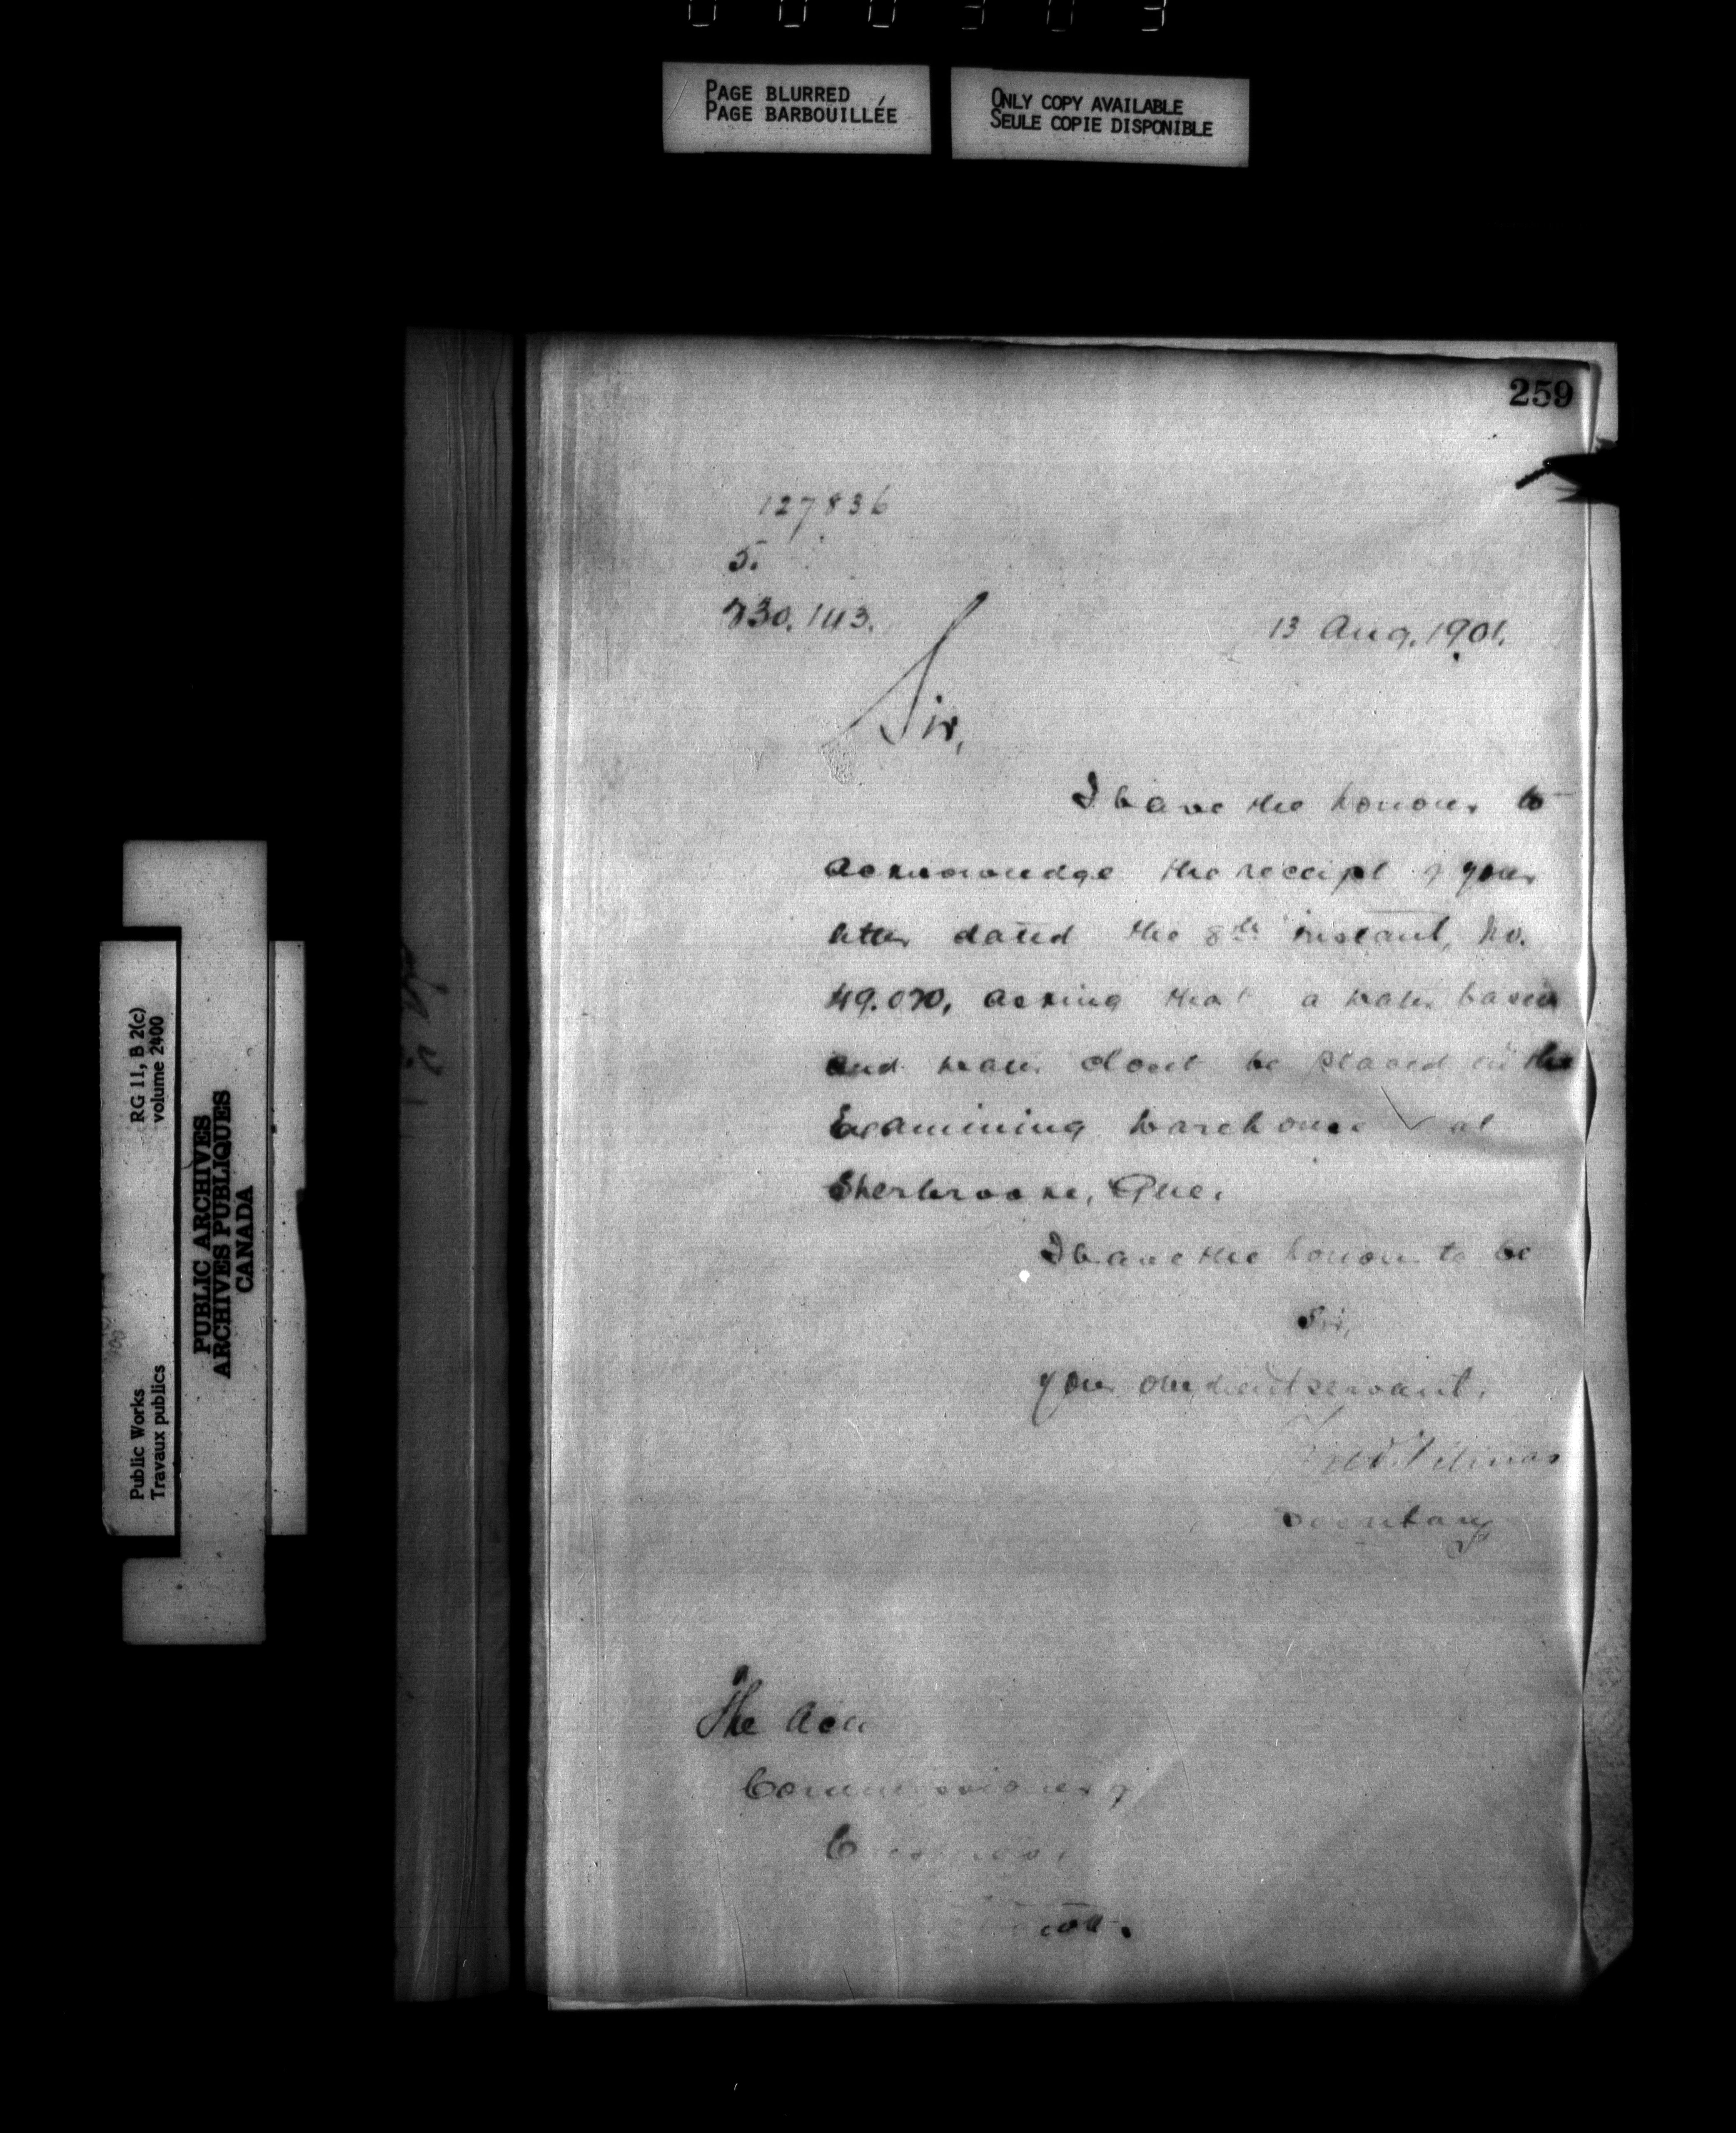 0 0 0 3 0 3
PAGE BLURRED
PAGE BARBOUILLÉE
ONLY COPY AVAILABLE
SEULE COPIE DISPONIBLE
259
127836
5.
13 Aug. 1901.
Sir,
I have the honour to
acknowledge the receipt of your
letter dated the 8th instant, No.
asking that a water basin
and water closet be placed in the
Examining Warehouse at
Sherbrooke, Que.
I have the honour to be
Sir,
your obedient servant,
Secretary
The
Commissioner of
Customs,
RG 11, B 2(c)
volume 2400
Public Works
Travaux publics
PUBLIC ARCHIVES
ARCHIVES PUBLIQUES
CANADA